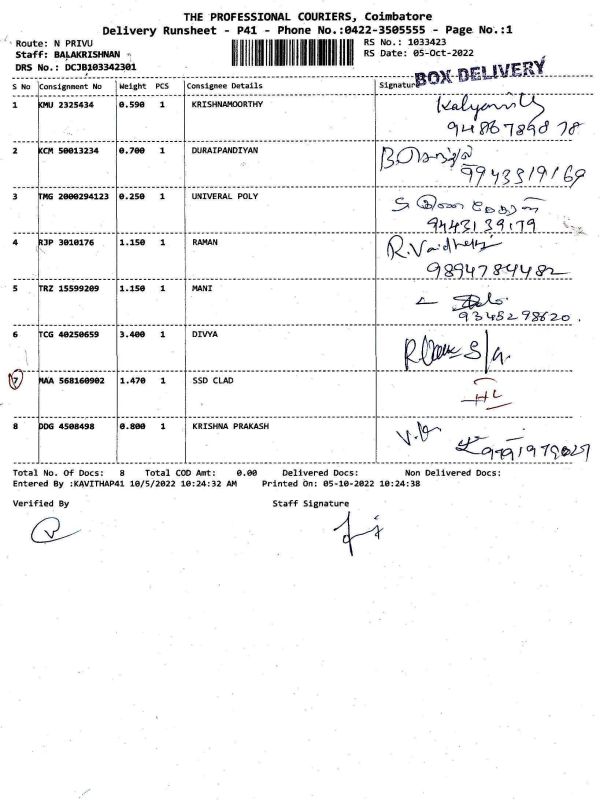 THE PROFESSIONAL COURIERS, Coimbatore
Delivery Runsheet - P41 - Phone No.:0422-3505555 - Page No.:1
Route: N PRIVU
RS No.: 1033423
Staff: BALAKRISHNAN
RS Date: 05-Oct-2022
DRS No.: DCJB103342301
BOX DELIVERY
S No Consignment No Weight PCS Consignee Details Signature
1 KMU 2325434 0.590 1 KRISHNAMOORTHY
2 KCM 50013234 0.700 1 DURAIPANDIYAN
9943319169
3 TMG 2000294123 0.250 1 UNIVERAL POLY
9443139179
4 RJP 3010176 1.150 1 RAMAN
9894784482
5 TRZ 15599209 1.150 1 MANI
9345298620.
6 TCG 40250659 3.400 1 DIVYA
7 MAA 568160902 1.470 1 SSD CLAD
8 DDG 4508498 0.800 1 KRISHNA PRAKASH
Total No. Of Docs: 8 Total COD Amt: 0.00 Delivered Docs: Non Delivered Docs:
Entered By :KAVITHAP41 10/5/2022 10:24:32 AM Printed On: 05-10-2022 10:24:38
Verified By Staff Signature